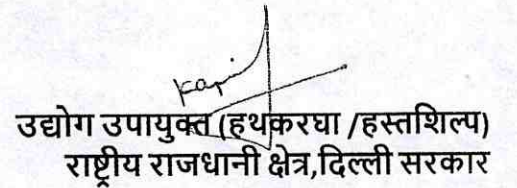 उद्योग उपायुक्त (हथकरघा /हस्तशिल्प)
राष्ट्रीय राजधानी क्षेत्र,दिल्ली सरकार